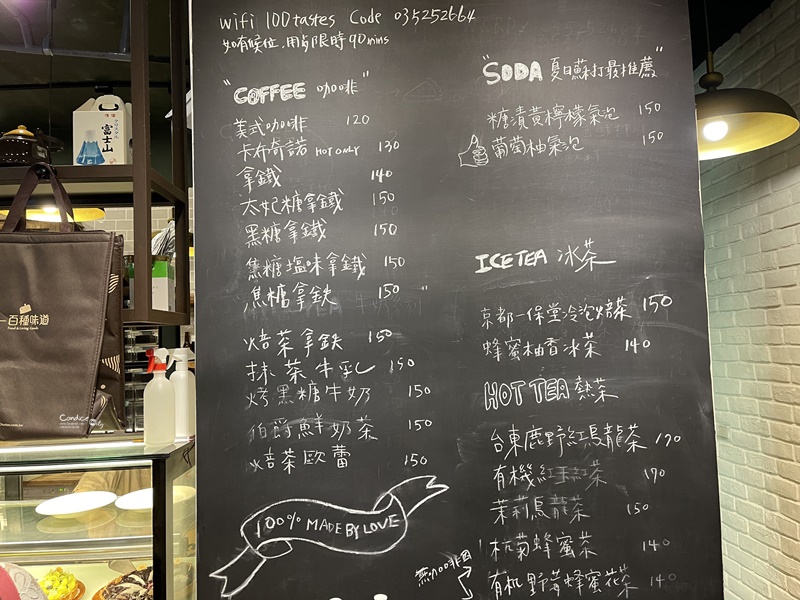 wifi 100tastes Code 035252664
如有候位,用餐限時90mins
"COFFEE 咖啡"
美式咖啡 120
卡布奇諾 HOT ONLY 130
拿鐵 140
太妃糖拿鐵 150
黑糖拿鐵 150
焦糖塩味拿鐵 150
焦糖拿鉄 150
焙茶拿鉄 150
抹茶牛乳 150
烤黑糖牛奶 150
伯爵鮮奶茶 150
焙茶歐蕾 150
100% MADE BY LOVE
"SODA 夏日蘇打最推薦"
糖漬黃檸檬氣泡 150
葡萄柚氣泡 150
ICE TEA 冰茶
京都一保堂冷泡焙茶 150
蜂蜜柚香冰茶 140
HOT TEA 熱茶
台東鹿野紅烏龍茶 170
有機紅玉紅茶 170
茉莉烏龍茶 150
杭菊蜂蜜茶 140
有机野莓蜂蜜花茶 140
無咖啡因
富士山
一百種味道
Food & Living Goods